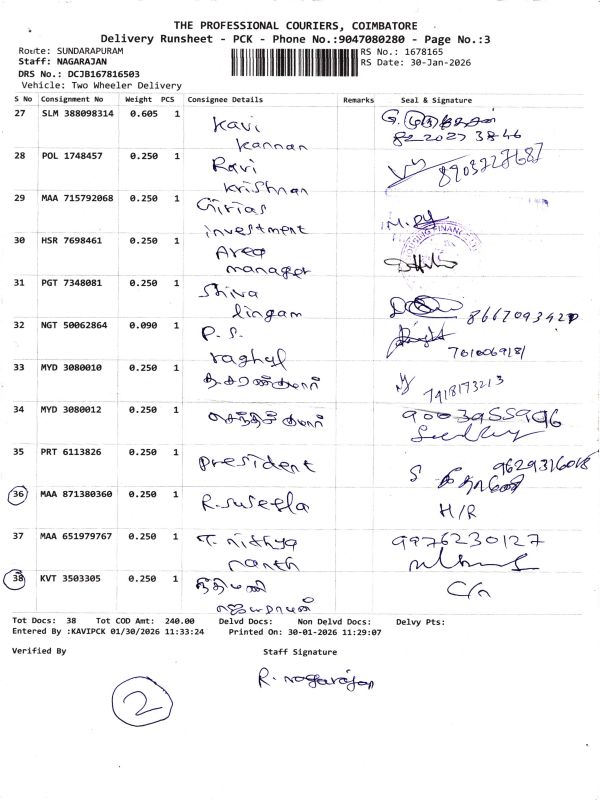 THE PROFESSIONAL COURIERS, COIMBATORE
Delivery Runsheet - PCK - Phone No.:9047080280 - Page No.:3
Route: SUNDARAPURAM
RS No.: 1678165
Staff: NAGARAJAN
RS Date: 30-Jan-2026
DRS No.: DCJB167816503
Vehicle: Two Wheeler Delivery
S No Consignment No Weight PCS Consignee Details Remarks Seal & Signature
27 SLM 388098314 0.605 1 Kavi
Kannan
28 POL 1748457 0.250 1 Ravi 8903727687
Krishnan
29 MAA 715792068 0.250 1 Girias
investment
30 HSR 7698461 0.250 1 Area
manager
31 PGT 7348081 0.250 1 Shiva
lingam
32 NGT 50062864 0.090 1 P. S.
raghul
33 MYD 3080010 0.250 1 7418173213
34 MYD 3080012 0.250 1 செந்தில் குமார் 9003955996
35 PRT 6113826 0.250 1 president
36 MAA 871380360 0.250 1 R. Suseela H/R
37 MAA 651979767 0.250 1 T. Nithya 9976230127
nanth
38 KVT 3503305 0.250 1
Tot Docs: 38 Tot COD Amt: 240.00 Delvd Docs: Non Delvd Docs: Delvy Pts:
Entered By :KAVIPCK 01/30/2026 11:33:24 Printed On: 30-01-2026 11:29:07
Verified By Staff Signature
R. nagarajan
2